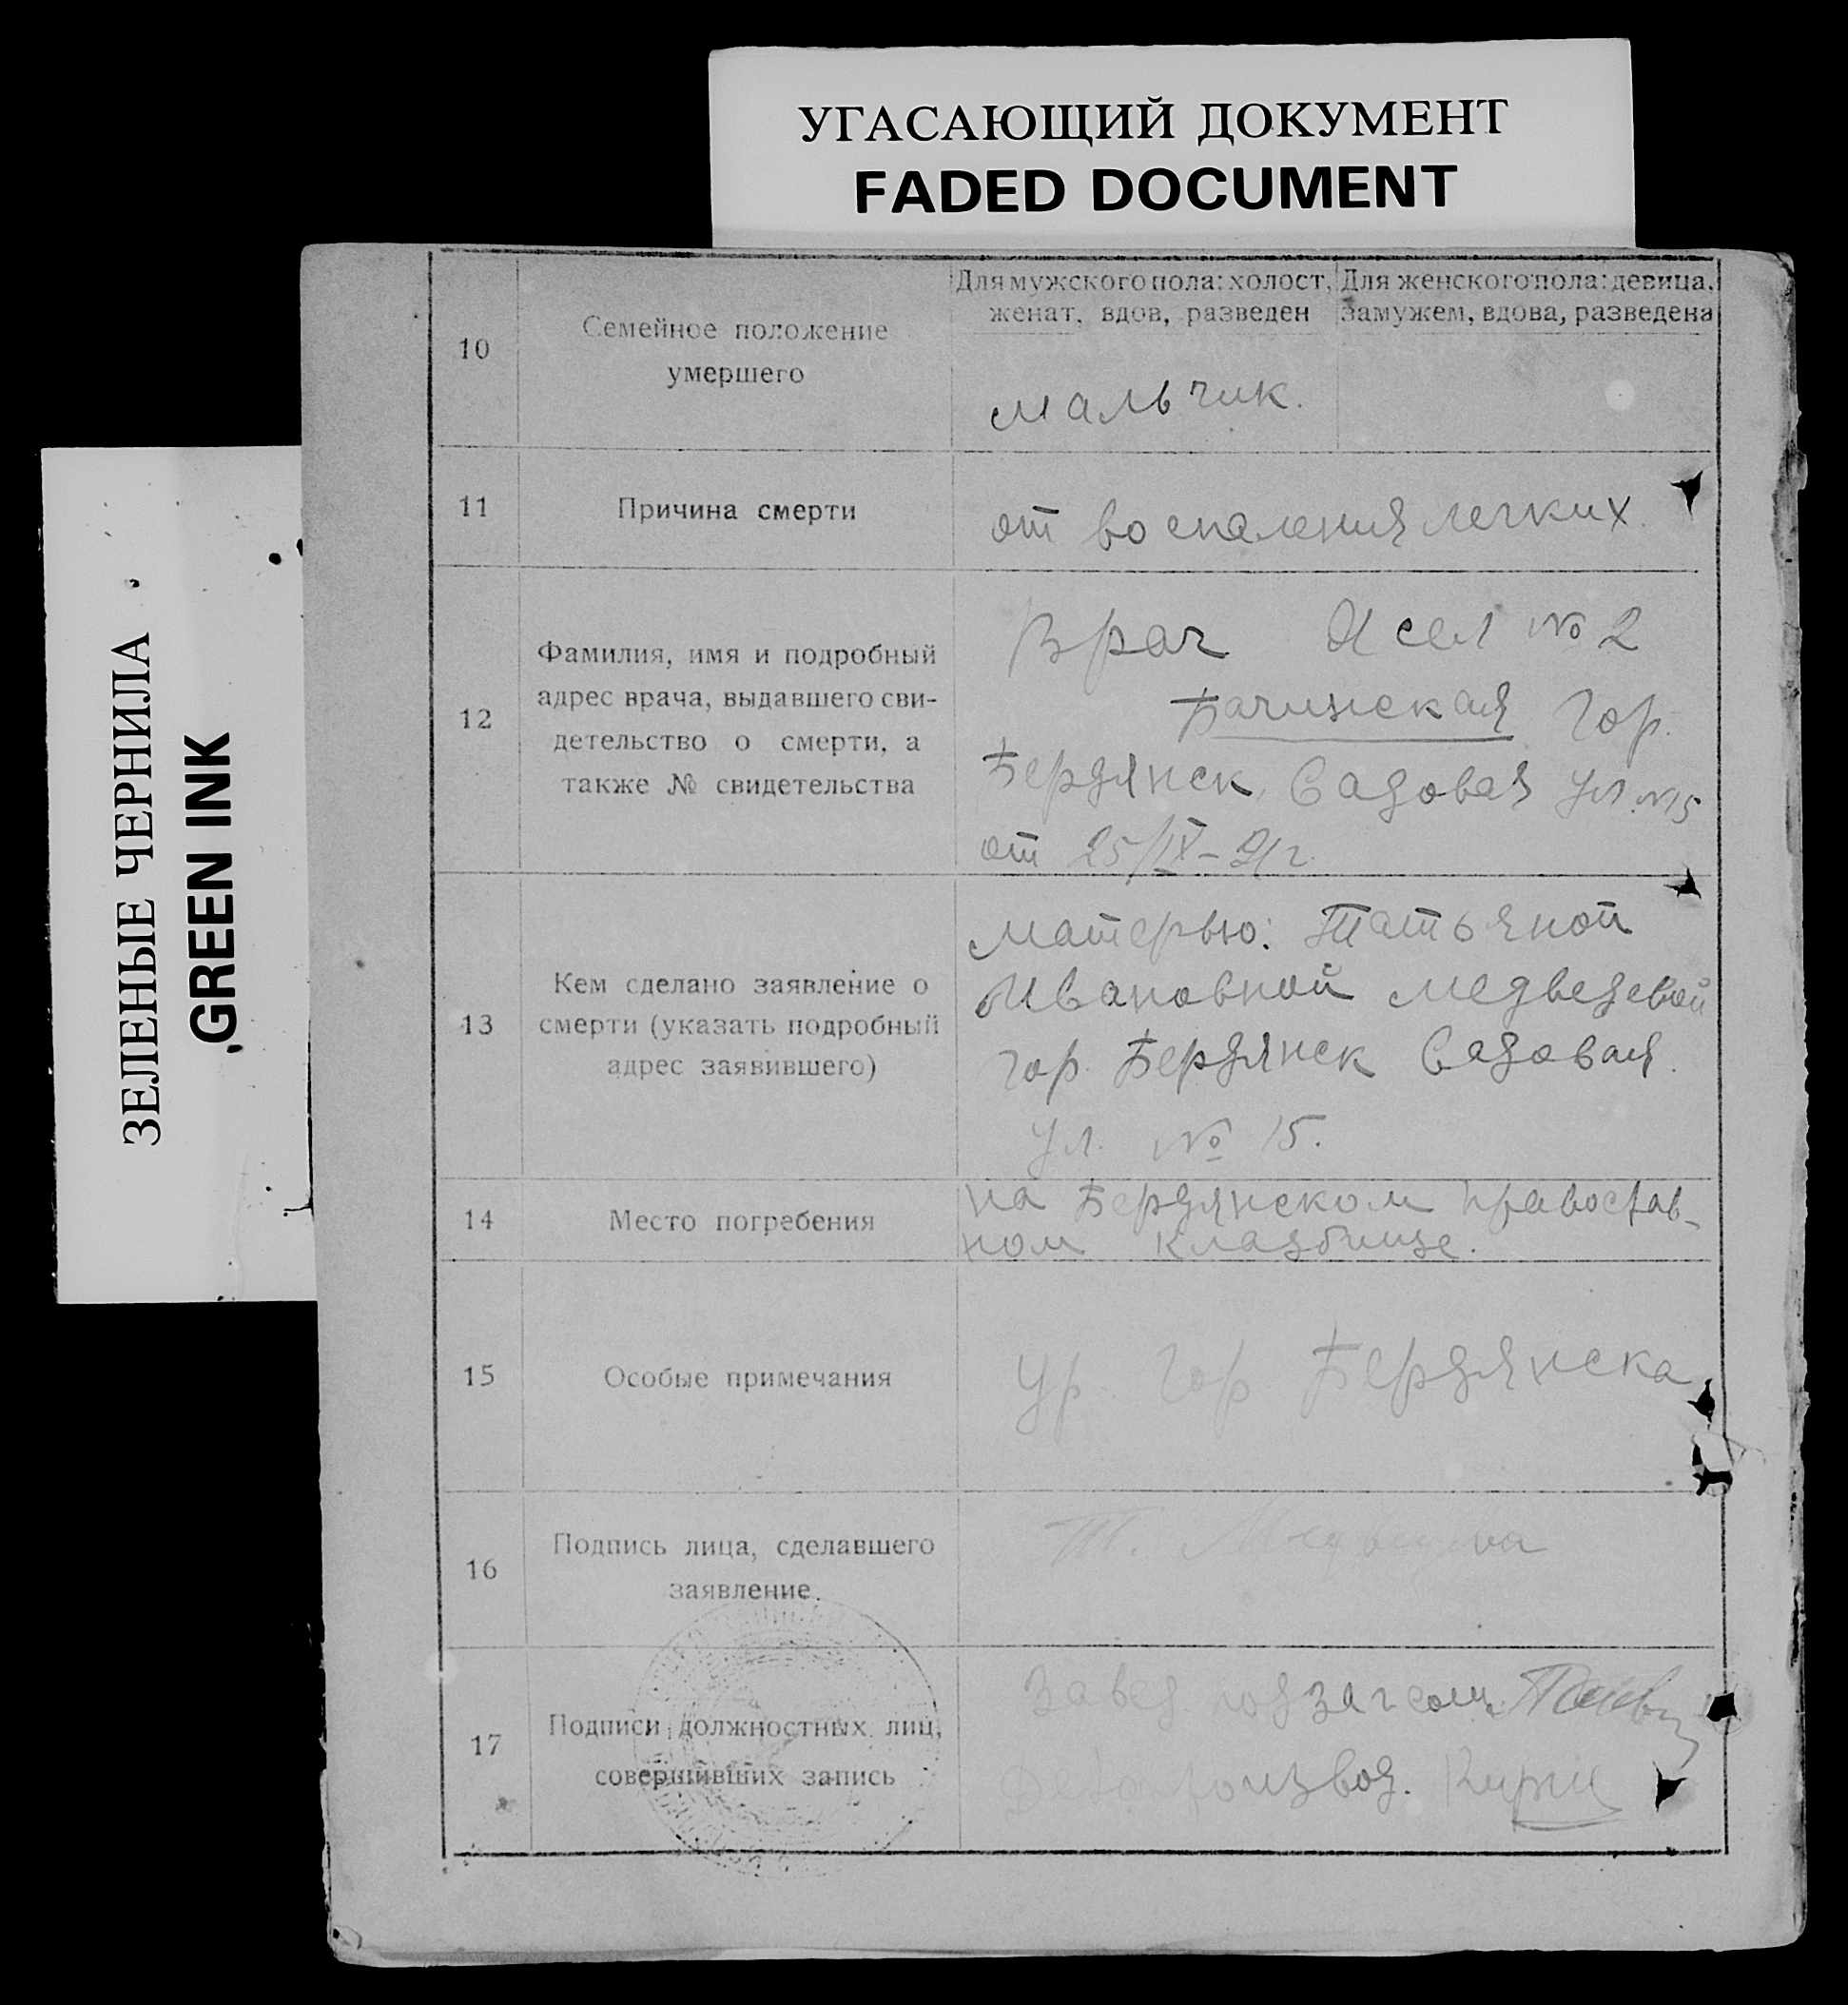 УГАСАЮЩИЙ ДОКУМЕНТ
FADED DOCUMENT
ЗЕЛЕНЫЕ ЧЕРНИЛА
GREEN INK
10
Семейное положение
умершего
Для мужского пола: холост,
женат, вдов, разведен
Для женского пола: девица,
замужем, вдова, разведена
мальчик.
11
Причина смерти
от воспаления легких.
12
Фамилия, имя и подробный
адрес врача, выдавшего сви-
детельство о смерти, а
также № свидетельства
Врач Ясел № 2
Бачинская Гор.
Бердянск, Садовая ул. №15
от 25/IX-21г.
13
Кем сделано заявление о
смерти (указать подробный
адрес заявившего)
матерью: Татьяной
Ивановной Медведевой
гор. Бердянск Садовая.
ул. № 15.
14
Место погребения
на Бердянском православ-
ном кладбище.
15
Особые примечания
ур. гор Бердянска
16
Подпись лица, сделавшего
заявление.
Т. Медведева
17
Подписи должностных лиц,
совершивших запись
Завед. подзагсом
Делопроизвод.